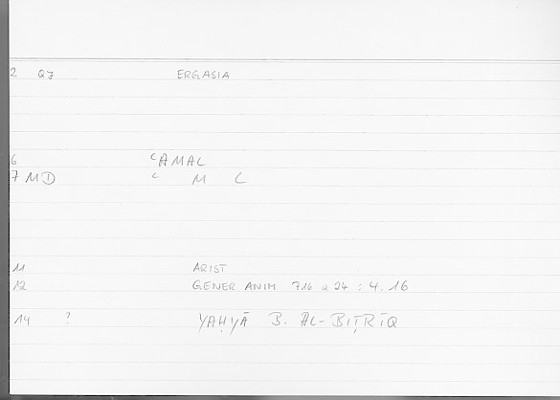 2 QJ ERGASIA
6 ʿAMAL
7 M① ʿ M L
11 ARIST
12 GENER ANIM 716 a 24 : 4.16
14 ? YAḤYĀ B. AL-BIṬRĪQ